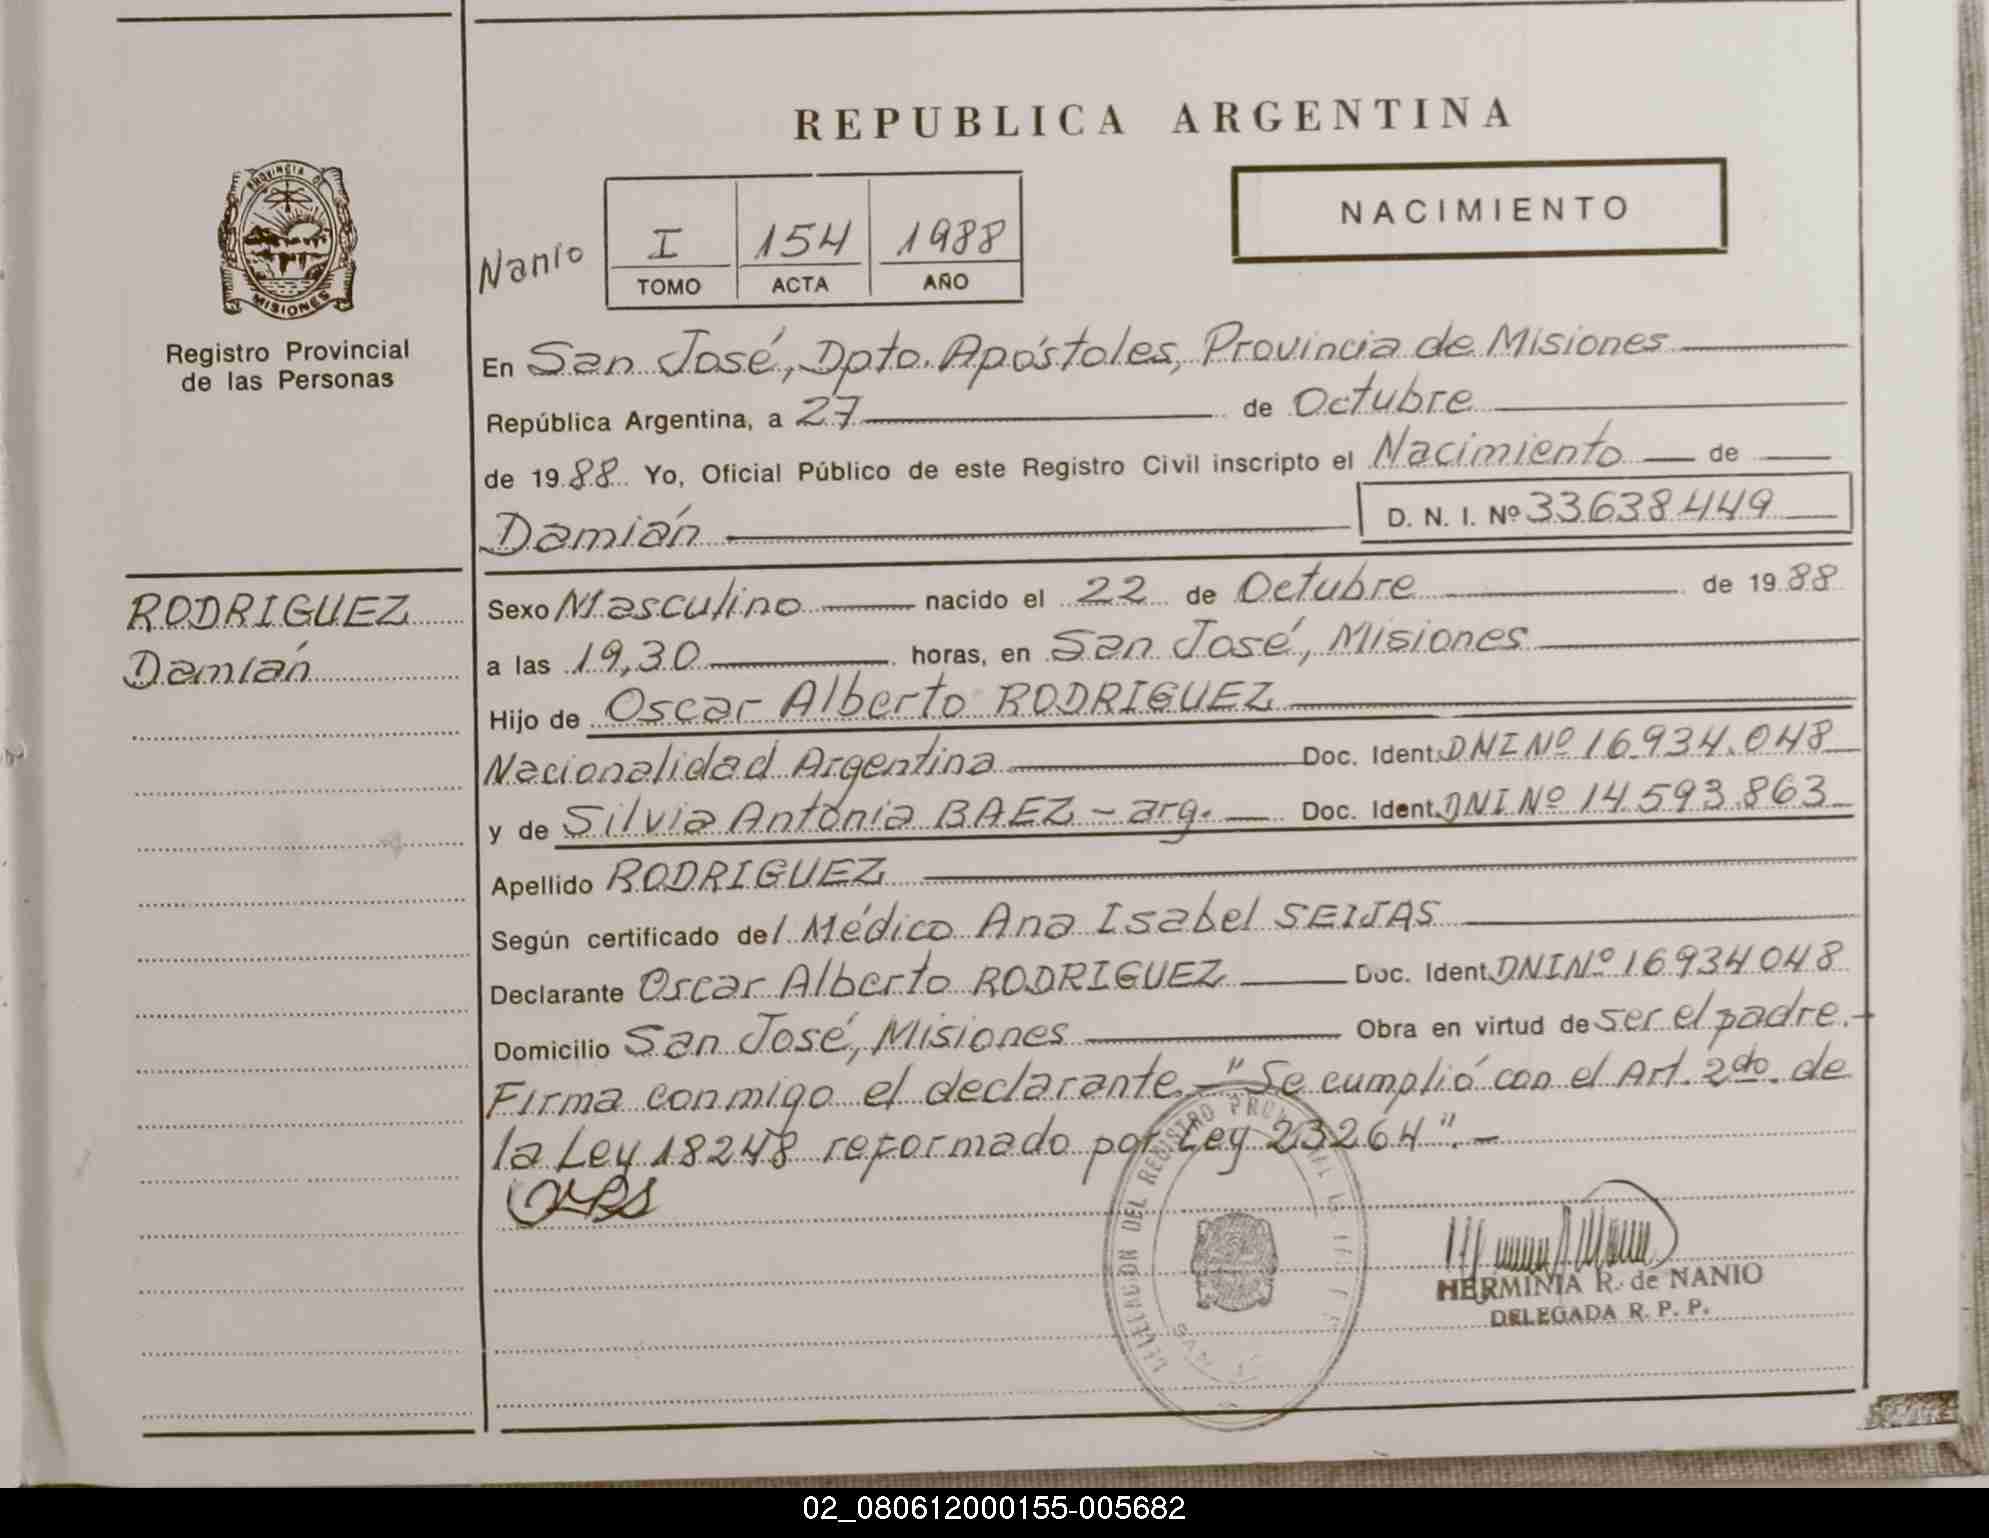 REPUBLICA ARGENTINA
NACIMIENTO
PROVINCIA DE
MISIONES
Registro Provincial
de las Personas
Nanio
I 154 1988
TOMO ACTA AÑO
En San José, Dpto. Apóstoles, Provincia de Misiones
República Argentina, a 27 de Octubre
de 1988 Yo, Oficial Público de este Registro Civil inscripto el Nacimiento de
Damián D. N. I. Nº 33638449
RODRIGUEZ
Damián
Sexo Masculino nacido el 22 de Octubre de 1988
a las 19,30 horas, en San José, Misiones
Hijo de Oscar Alberto RODRIGUEZ
Nacionalidad Argentina Doc. Ident. DNI Nº 16.934.048
y de Silvia Antonia BAEZ - arg. Doc. Ident. DNI Nº 14.593.863
Apellido RODRIGUEZ
Según certificado del Médico Ana Isabel SEIJAS
Declarante Oscar Alberto RODRIGUEZ Doc. Ident. DNI Nº 16934048
Domicilio San José, Misiones Obra en virtud de ser el padre.-
Firma conmigo el declarante.- "Se cumplió con el Art. 2do. de
la Ley 18248 reformado por Ley 23264".-
DELEGACION DEL REGISTRO
HERMINIA R. de NANIO
DELEGADA R. P. P.
02_080612000155-005682